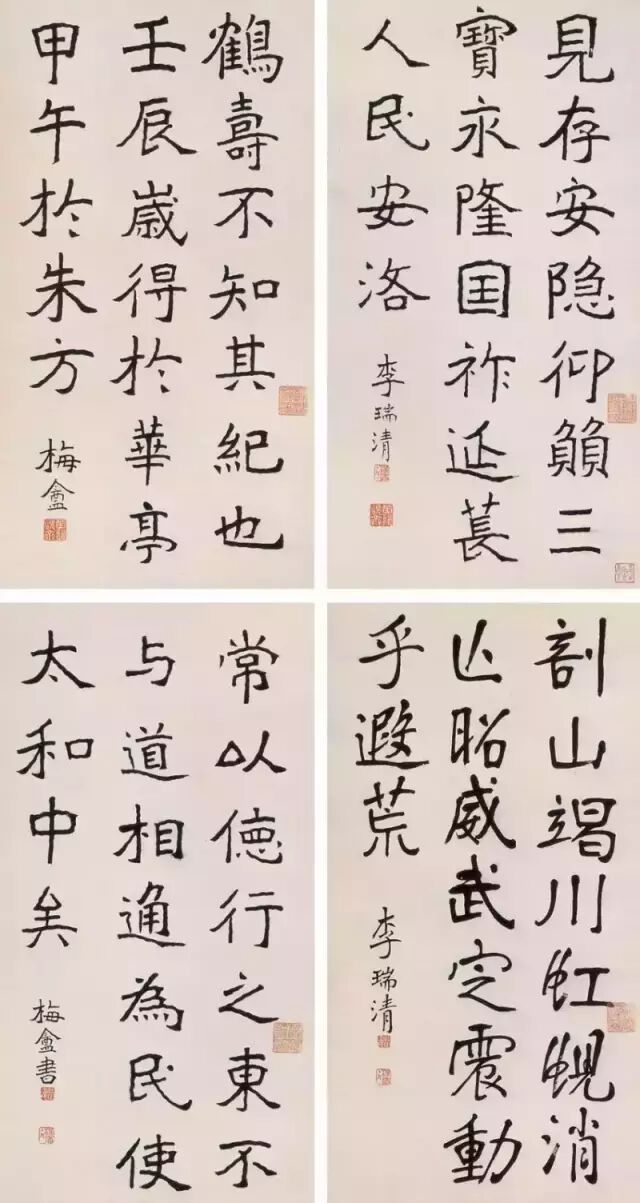 見存安隐仰願三
寶永隆囯祚延萇
人民安洛
李瑞清
鶴壽不知其紀也
壬辰歲得於華亭
甲午於朱方
梅盦
剖山竭川虹蜺消
亾昭威武定震動
乎遐荒
李瑞清
常以德行之東不
与道相通為民使
太和中矣
梅盦書